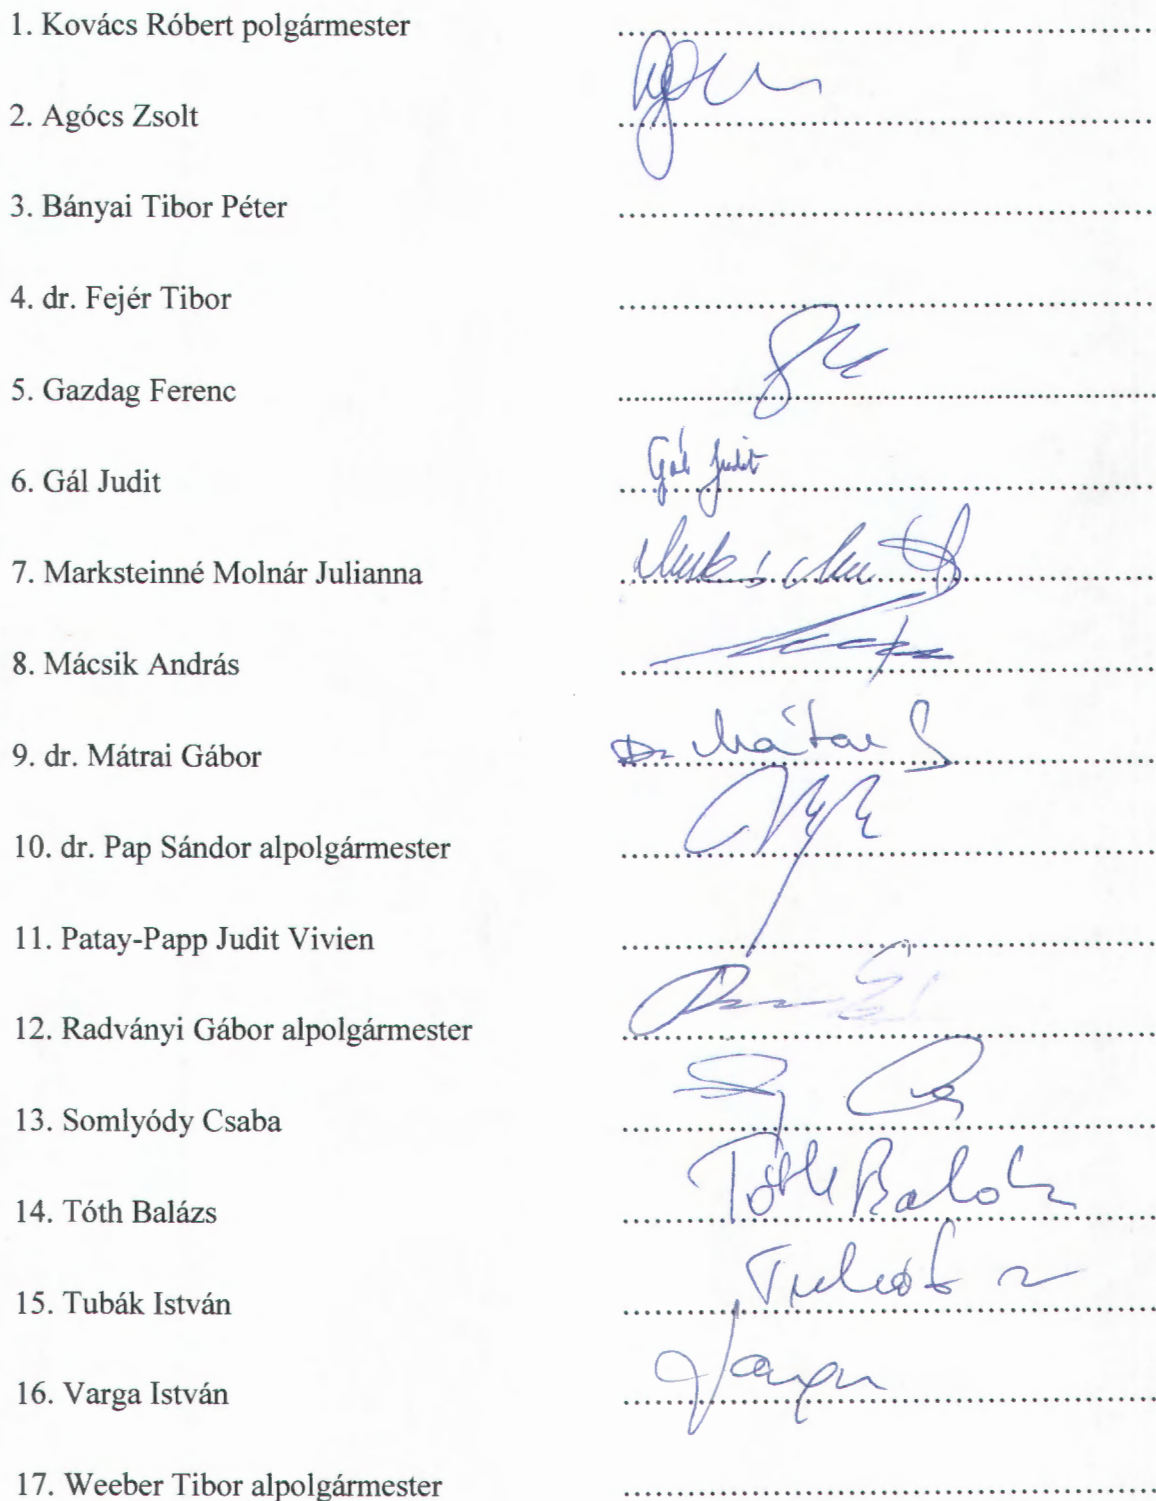 1. Kovács Róbert polgármester ....................
2. Agócs Zsolt ....................
3. Bányai Tibor Péter ....................
4. dr. Fejér Tibor ....................
5. Gazdag Ferenc ....................
6. Gál Judit .................... Gál Judit
7. Marksteinné Molnár Julianna ....................
8. Mácsik András ....................
9. dr. Mátrai Gábor .................... Dr Mátrai G
10. dr. Pap Sándor alpolgármester ....................
11. Patay-Papp Judit Vivien ....................
12. Radványi Gábor alpolgármester ....................
13. Somlyódy Csaba ....................
14. Tóth Balázs .................... Tóth Balázs
15. Tubák István .................... Tubák
16. Varga István .................... Varga
17. Weeber Tibor alpolgármester ....................